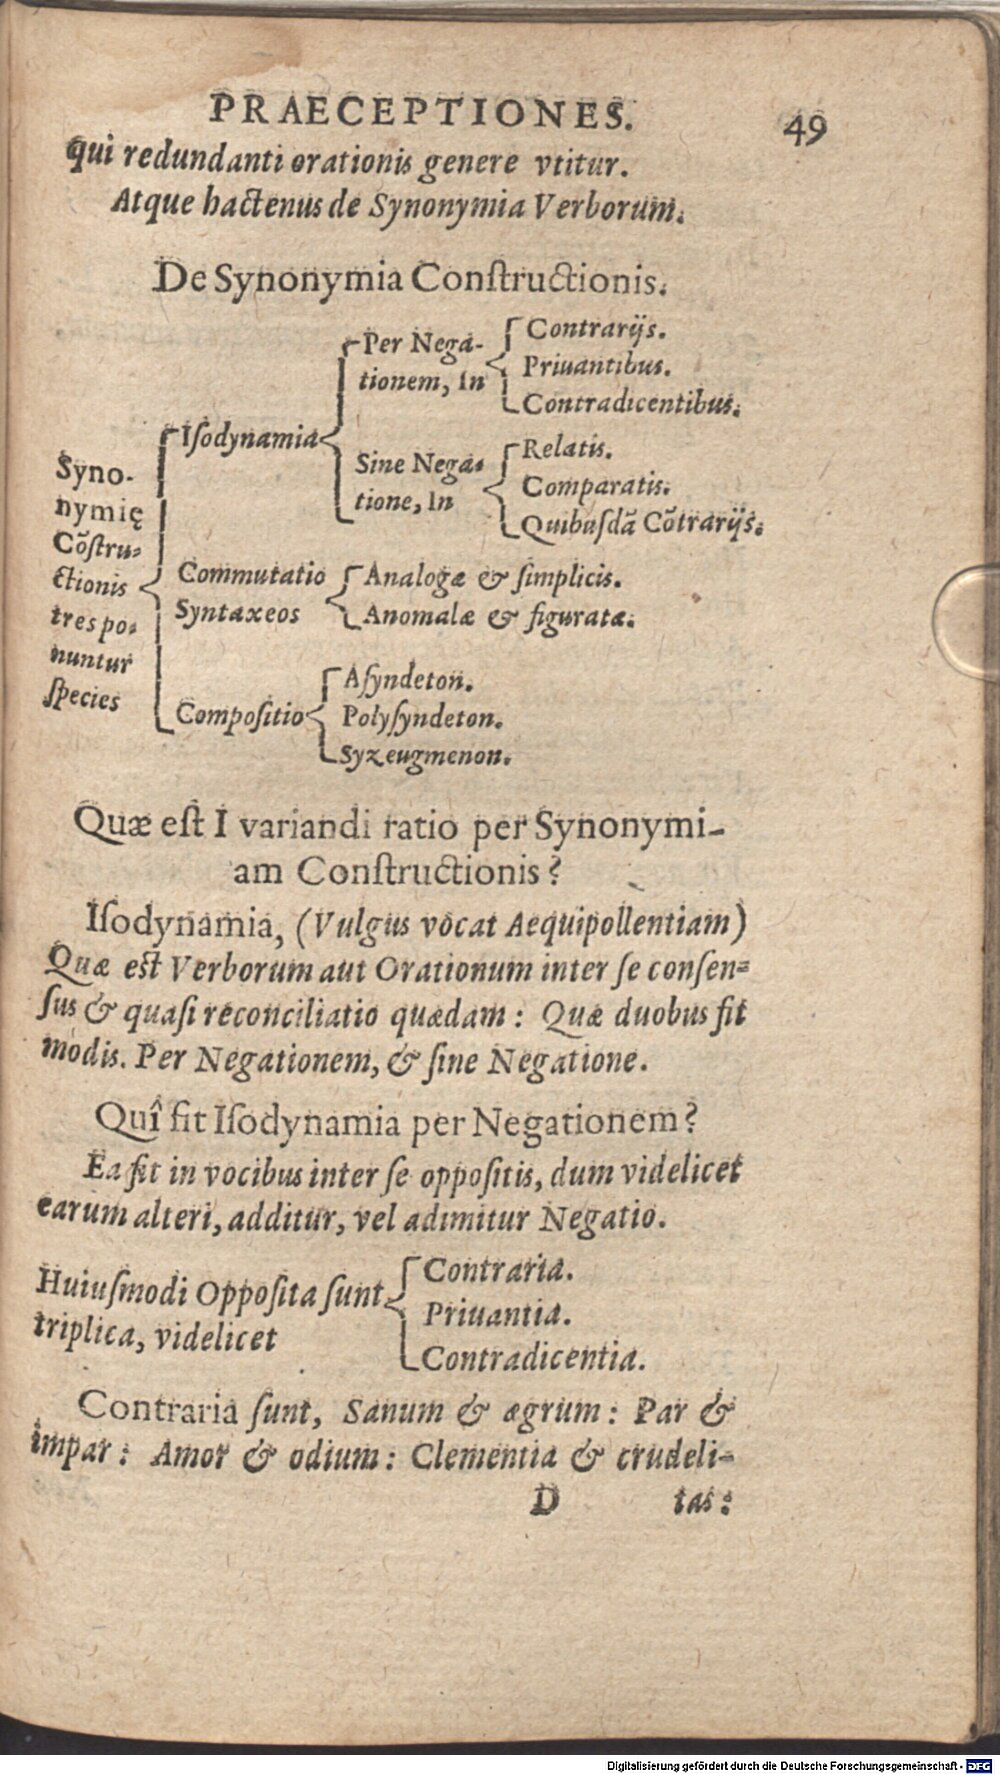 PRAECEPTIONES. 49
qui redundanti orationis genere vtitur.
Atque hactenus de Synonymia Verborum.
De Synonymia Conſtructionis.
Syno-
nymię
Cõſtru-
ctionis
tres po-
nuntur
ſpecies
Iſodynamia
Per Nega-
tionem, In
Contrarijs.
Priuantibus.
Contradicentibus.
Sine Nega-
tione, In
Relatis.
Comparatis.
Quibuſdã Cõtrarijs.
Commutatio
Syntaxeos
Analogæ & ſimplicis.
Anomalæ & figuratæ.
Compoſitio
Aſyndeton.
Polyſyndeton.
Syzeugmenon.
Quæ eſt I variandi ratio per Synonymi-
am Conſtructionis?
Iſodynamia, (Vulgus vocat Aequipollentiam)
Quæ eſt Verborum aut Orationum inter ſe conſen-
ſus & quaſi reconciliatio quædam: Quæ duobus fit
modis. Per Negationem, & ſine Negatione.
Quî fit Iſodynamia per Negationem?
Ea fit in vocibus inter ſe oppoſitis, dum videlicet
earum alteri, additur, vel adimitur Negatio.
Huiuſmodi Oppoſita ſunt
triplica, videlicet
Contraria.
Priuantia.
Contradicentia.
Contraria ſunt, Sanum & ægrum: Par &
impar: Amor & odium: Clementia & crudeli-
D tas:
Digitalisierung gefördert durch die Deutsche Forschungsgemeinschaft - DFG